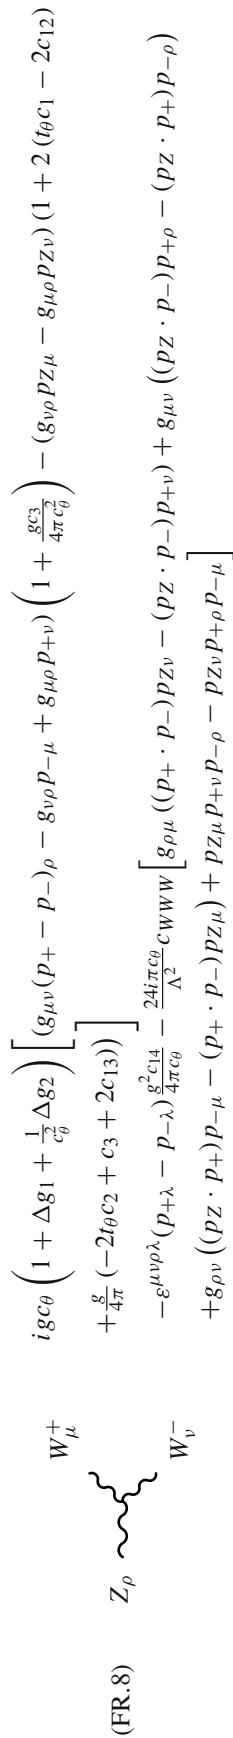 (FR.8)
Z_ρ
W^+_μ
W^-_ν
igc_θ \left( 1 + Δg_1 + \frac{1}{c_θ^2} Δg_2 \right) \Big[ (g_{μν}(p_+ − p_−)_ρ − g_{νρ} p_{−μ} + g_{μρ} p_{+ν}) \left( 1 + \frac{gc_3}{4πc_θ^2} \right) − (g_{νρ} p_{Zμ} − g_{μρ} p_{Zν}) (1 + 2 (t_θ c_1 − 2c_{12})
+ \frac{g}{4π} (−2t_θ c_2 + c_3 + 2c_{13})) \Big]
−ε^{μνρλ}(p_{+λ} − p_{−λ}) \frac{g^2 c_{14}}{4πc_θ} − \frac{24iπc_θ}{Λ^2} c_{WWW} \Big[ g_{ρμ} ((p_+ · p_−)p_{Zν} − (p_Z · p_−)p_{+ν}) + g_{μν} ((p_Z · p_−)p_{+ρ} − (p_Z · p_+)p_{−ρ})
+g_{ρν} ((p_Z · p_+)p_{−μ} − (p_+ · p_−)p_{Zμ}) + p_{Zμ} p_{+ν} p_{−ρ} − p_{Zν} p_{+ρ} p_{−μ} \Big]